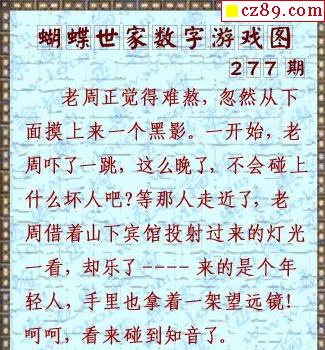 cz89.com
蝴蝶世家数字游戏图
277期
老周正觉得难熬，忽然从下
面摸上来一个黑影。一开始，老
周吓了一跳，这么晚了，不会碰上
什么坏人吧?等那人走近了，老
周借着山下宾馆投射过来的灯光
一看，却乐了----来的是个年
轻人，手里也拿着一架望远镜!
呵呵，看来碰到知音了。